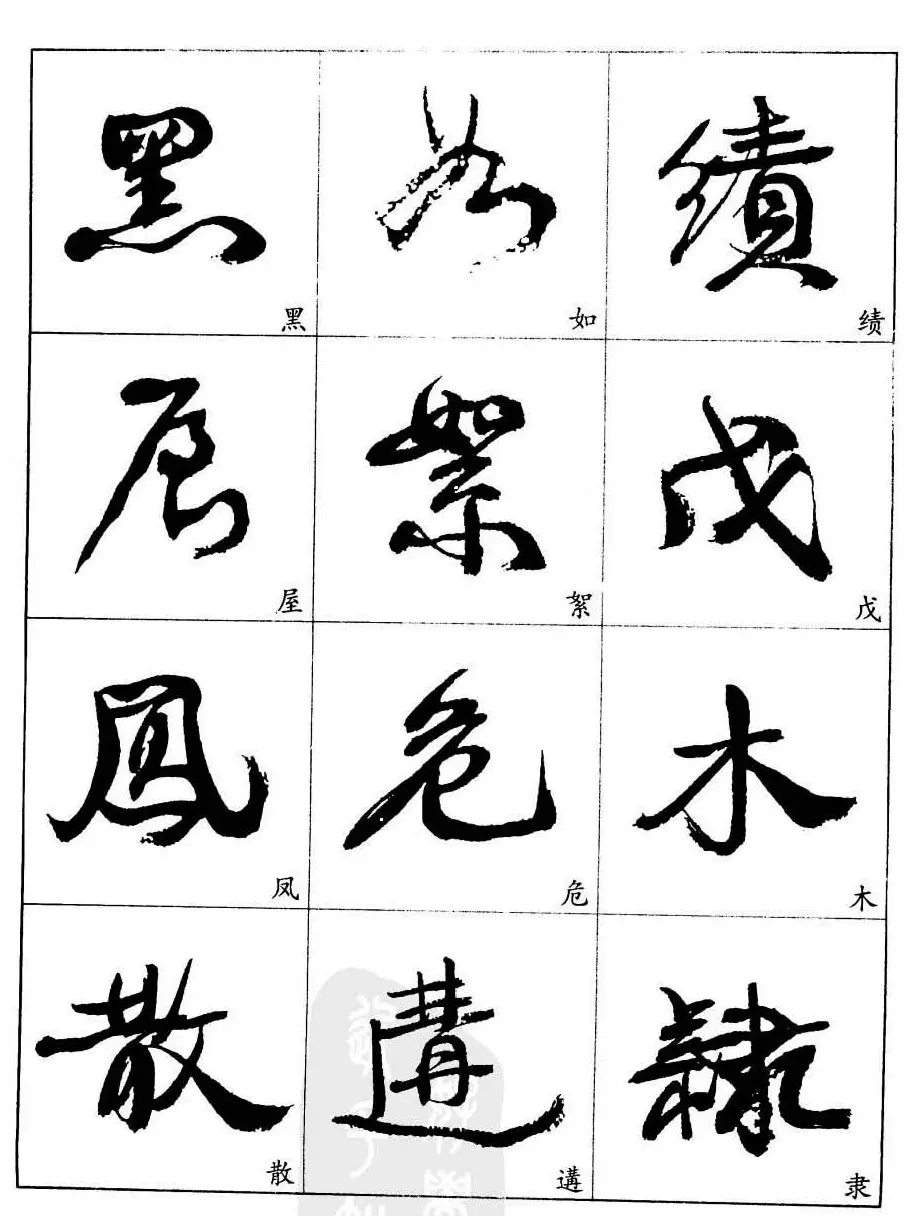 黑 如 績
黑 如 绩
屋 絮 戊
屋 絮 戊
鳳 危 木
凤 危 木
散 遘 隸
散 遘 隶